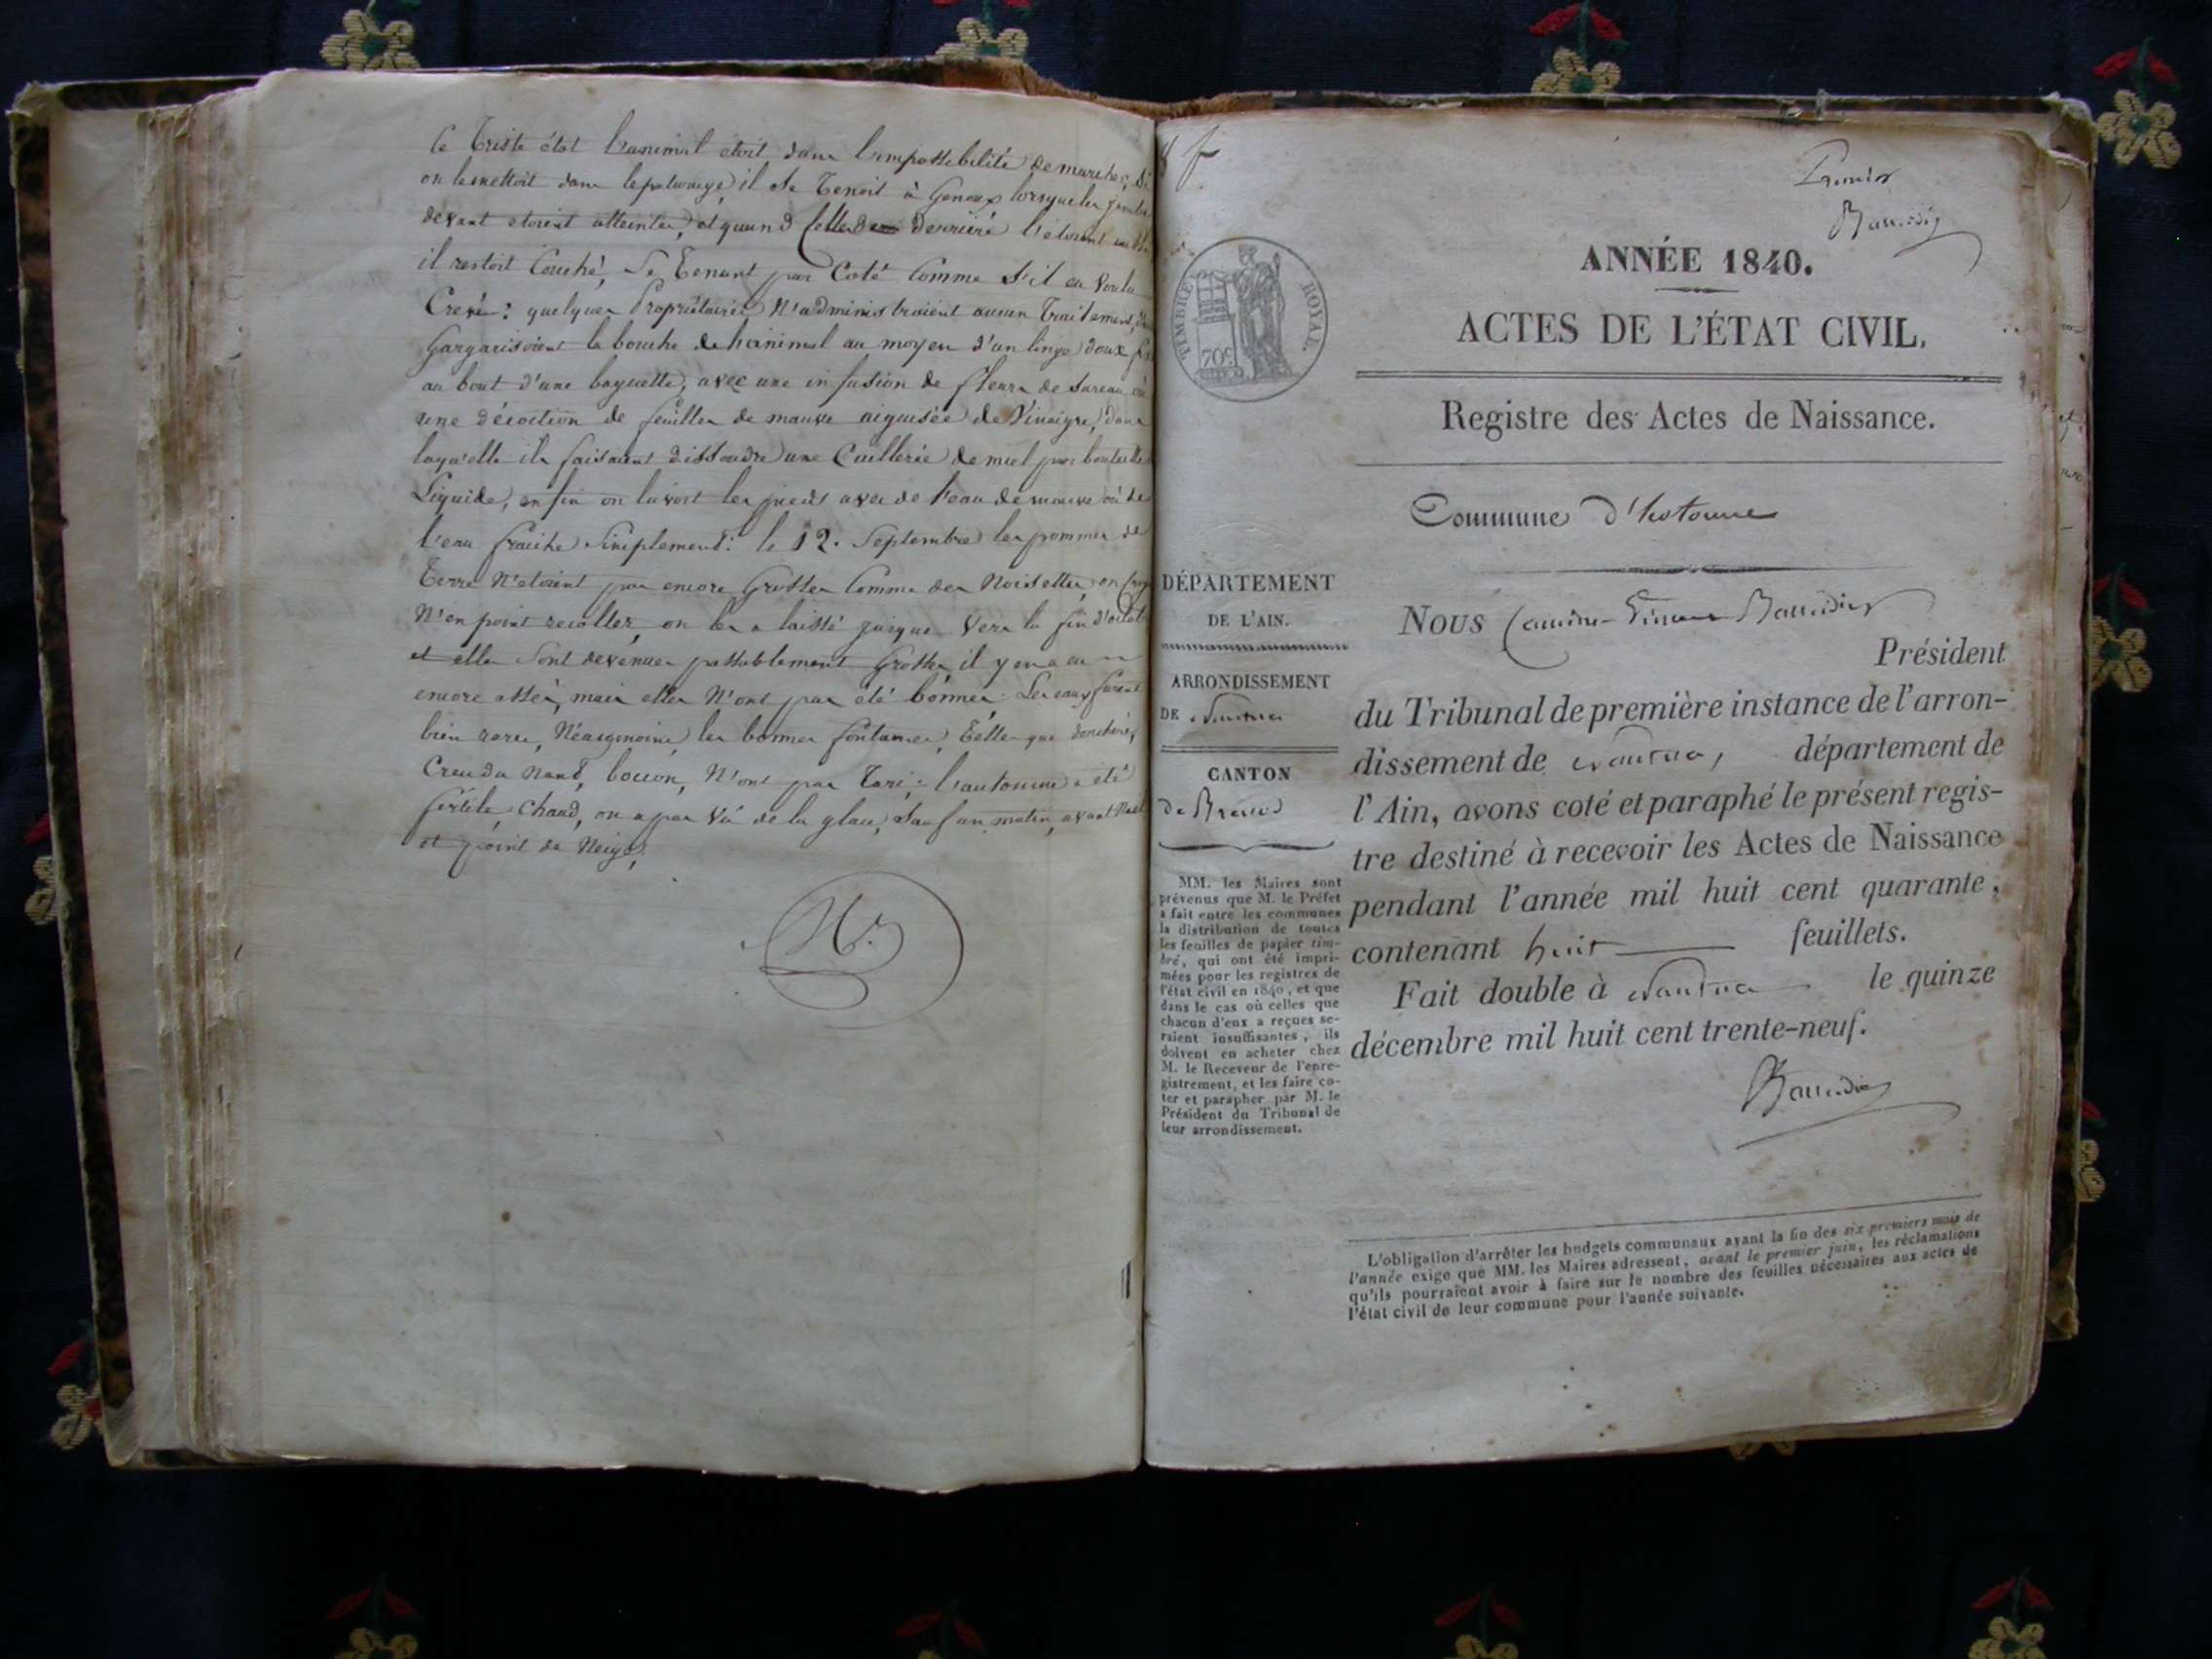 Ce triste état l'animal étoit dans l'impossibilité de marcher, Si
on le mettoit dans le paturage, il se Tenoit à Genoux lorsque les jambes
devant etoient atteintes, et quand celles de derriére l'étoient
il restoit Couché, Se Tenant par Coté Comme s'il eu voulu
Crever: quelques Propriétaires N'administroient aucun Traitement,
Gargarisoient la bouche de l'animal au moyen d'un linge doux
au bout d'une baguette, avec une infusion de fleurs de sureau ou
une décoction de feuilles de mauve aiguisée de Vinaigre, dans
laquelle ils faisaient dissoudre une Cuillerée de miel par bouteille
Liquide, enfin on lavoit les pieds avec de l'eau de mauve ou de
l'eau fraiche Simplement: le 12. Septembre les pommes de
Terre N'etoient pas encore Grosses Comme des Noisettes, on
N'en point recolter, on les a laissé jusque Vers la fin d'octob
et elles Sont devenues passablement Grosses, il y en a eu
encore assés, mais elles N'ont pas été bonnes. Les eaux furent
bien rares, Néaigmoins, les bonnes fontaines, Telles que
Creu du Nant, bocon, N'ont pas Tari; l'automne a été
fertile, Chaud, on a pas Vû de la glace, Sauf un matin, avant Noël
et point de Neige,
8 f
Premier
TIMBRE ROYAL.
70c
ANNÉE 1840.
ACTES DE L'ÉTAT CIVIL.
Registre des Actes de Naissance.
Commune d'hotonne
DÉPARTEMENT
DE L'AIN.
ARRONDISSEMENT
DE Nantua
CANTON
de Brenod
MM. les Maires sont
prévenus que M. le Préfet
a fait entre les communes
la distribution de toutes
les feuilles de papier tim-
bré, qui ont été impri-
mées pour les registres de
l'état civil en 1840, et que
dans le cas où celles que
chacun d'eux a reçues se-
raient insuffisantes, ils
doivent en acheter chez
M. le Receveur de l'enre-
gistrement, et les faire co-
ter et parapher par M. le
Président du Tribunal de
leur arrondissement.
Nous
Président
du Tribunal de première instance de l'arron-
dissement de Nantua, département de
l'Ain, avons coté et paraphé le présent regis-
tre destiné à recevoir les Actes de Naissance
pendant l'année mil huit cent quarante,
contenant huit feuillets.
Fait double à Nantua le quinze
décembre mil huit cent trente-neuf.
L'obligation d'arrêter les budgets communaux avant la fin des six premiers mois de
l'année exige que MM. les Maires adressent, avant le premier juin, les réclamations
qu'ils pourraient avoir à faire sur le nombre des feuilles nécessaires aux actes de
l'état civil de leur commune pour l'année suivante.